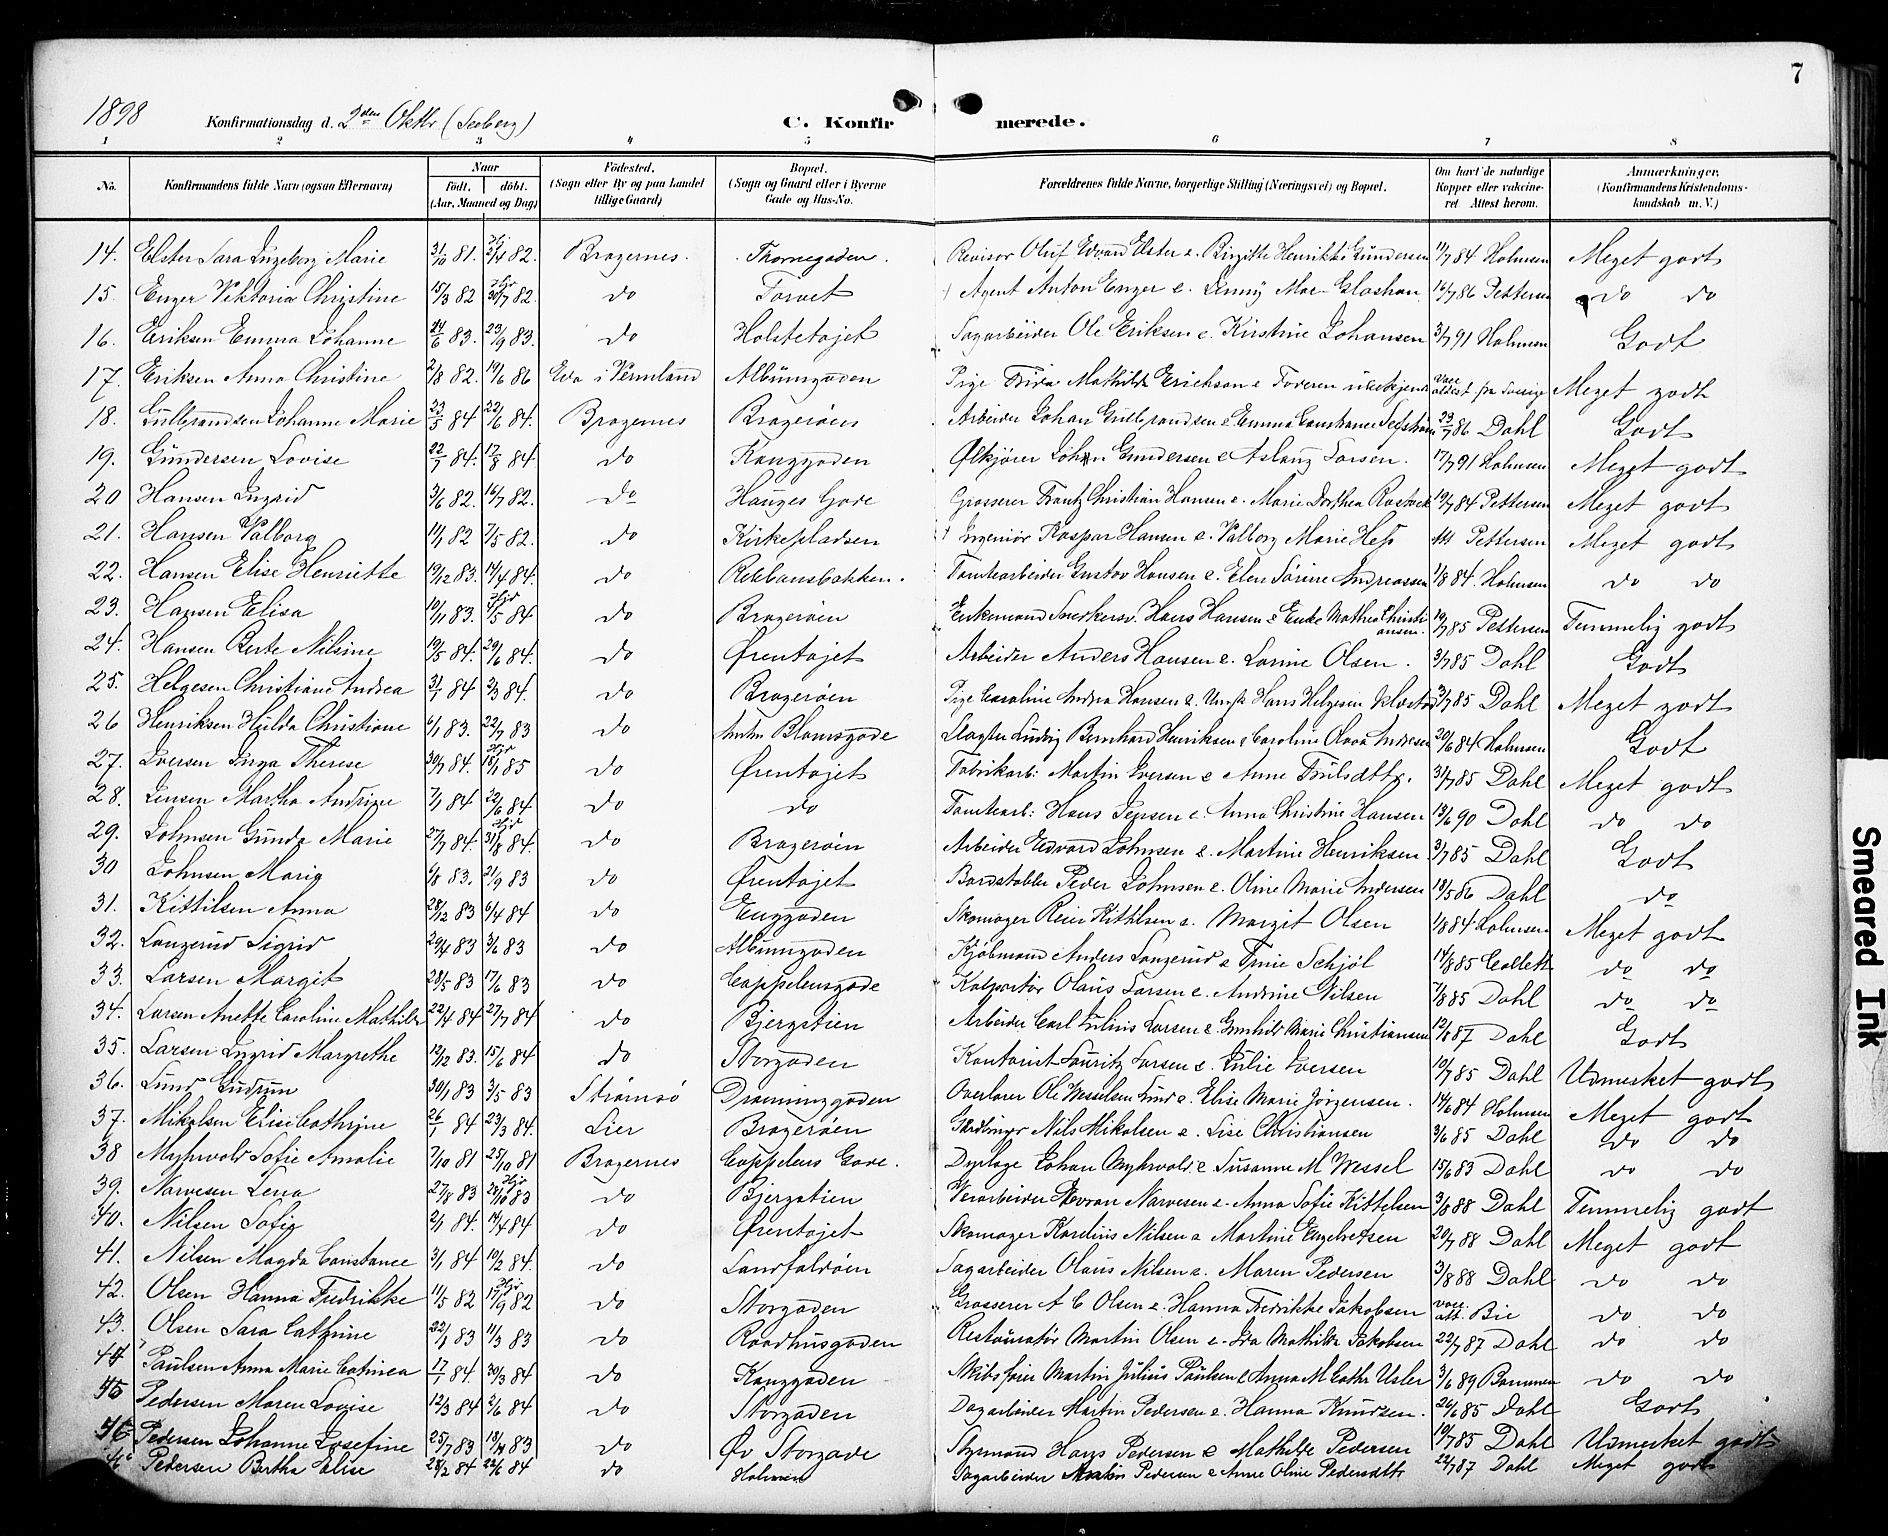 7
1898 Konfirmationsdag d. 2den Oktbr (Seeberg) C. Konfirmerede.
1 2 3 4 5 6 7 8
No. Konfirmandens fulde Navn (ogsaa Efternavn) Naar födt. döbt. (Aar, Maaned og Dag) Födested. (Sogn eller By og paa Landet tillige Gaard) Bopæl. (Sogn og Gaard eller i Byerne Gade og Hus-No. Forældrenes fulde Navne, borgerlige Stilling (Næringsvei) og Bopæl. Om havt de naturlige Kopper eller vakcineret Attest herom. Anmærkninger. (Konfirmandens Kristendomskundskab m. V.)
14. Elster Sara Ingeborg Marie 31/10 81. 82. Bragernes. Thornegaden. Revisor Oluf Edvard Elster e. Birgitte Henrikke Gundersen 11/7 84 Holmsen Meget godt
15. Enger Viktoria Christine 15/3 82 Hjd 30/7 82. do Torvet Agent Anton Enger e. Jenny Mac-Glashan 16/7 86 Pettersen do do
16. Eriksen Emma Johanne 24/6 83. 23/9 83. do Holstetøjet Sagarbeider Ole Eriksen e. Kirstine Johansen 3/7 91 Holmsen Godt
17. Eriksen Anna Christine 2/8 82. 19/6 86 Eda i Vermland Albumgaden Pige Frida Mathilde Erichson e Faderen Meget godt
18. Gulbrandsen Johanne Marie 23/5 84 22/6 84. Bragernes Bragerøen Arbeider Johan Gulbrandsen e Emma Constance 23/7 86 Dahl Godt
19. Gundersen Lovise 22/7 84. 17/8 84. do Konggaden Ølkjører Johan Gundersen e Aslaug Larsen. 17/7 91 Holmsen Meget godt
20 Hansen Ingrid 3/6 82. 16/7 82. do Hauges Gade Grosserer Frantz Christian Hansen e. Marie Dorthea 19/7 84 Pettersen Meget godt
21. Hansen Valborg 11/1 82 7/5 82. do Kirkepladsen Ingeniør Kaspar Hansen e. Valborg Marie Hess Pettersen Meget godt
22. Hansen Elise Henriette 19/12 83. 14/4 84. do Rebbansbakken. Tomtearbeider Gustav Hansen e. Elen Sørine Andreassen 1/8 84. Holmsen do do
23. Hansen Elisa 10/11 83. Hjd 4/5 84 do Bragerøen Enkemand Hans Hansen e Enke Mathea Christiansen. 19/7 85 Pettersen Temmelig godt
24. Hansen Berte Nilsine 19/5 84. 29/6 84. do Ørentøjet Arbeider Anders Hansen e. Larine Olsen. 3/7 85 Dahl Godt
25. Helgesen Christiane Andrea 31/1 84 2/3 84. do Bragerøen Pige Caroline Andrea Hansen e. Hans Helgesen 3/7 85 Dahl Meget godt
26 Henriksen Hulda Christiane 6/1 83. 22/7 83 do Blomsgade Slagter Ludvig Bernhard Henriksen e Caroline Olava Andresen 20/6 84 Holmsen Godt
27. Iversen Inga Therese 30/7 84. Hjd 18/1 85 do Ørentøjet Fabrikarb: Martin Iversen e Anne 31/7 85 Dahl Meget godt
28. Jensen Martha Andrine 7/1 84 22/6 84. do do Tomtearb: Hans Jensen e Anna Christine Hansen 13/6 90 Dahl do do
29. Johnsen Gunda Marie 27/7 84. Hjd 31/8 84. do Bragerøen Arbeider Edvard Johnsen e. Martine Henriksen 3/7 85 Dahl Godt
30 Johnsen Marie 6/8 83. 21/9 83 do Ørentøjet Bordstabler Peder Johnsen e. Oline Marie Andersen 18/5 86 Dahl do
31. Kittilsen Anna 28/12 83 6/4 84 do Enggaden Skomager Reier Kittilsen e. Margit Olsen 1/8 84 Holmsen Meget godt
32. Langerud Sigrid 29/4 83 3/6 83 do Albumgaden Kjøbmand Anders Langerud e Trine Schjøl 14/8 85 Collett do do
33. Larsen Margit 28/5 83 17/6 83 do Cappelensgade Kolportør Olaus Larsen e. Andrine Nilsen 7/8 85 Dahl do do
34. Larsen Anette Caroline Mathilde 22/4 84 27/7 84 do Bjergstien Arbeider Carl Julius Larsen e. Gunhild Marie Christiansen 12/8 87 Dahl Godt
35. Larsen Ingrid Margrethe 12/12 83. 15/6 84 do Storgaden Kontorist Lauritz Larsen e. Julie Iversen 10/7 85 Dahl Udmerket godt
36. Lund Gudrun 30/1 83 3/5 83 Strømsø Dronninggaden Overlærer Ole Wesselsen Lund e. Elise Marie Jørgensen. 14/6 84 Holmsen Meget godt
37. Mikalsen Elise Cathrine 26/1 84 23/3 84. Lier Bragerøen Nils Mikalsen e. Lise Christiansen 3/6 85 Dahl do do
38 Myhrvold Sofie Amalie 7/10 81 25/10 81 Bragernes Cappelens Gade. Johan Myhrvold e Susanne M Wessel 15/6 83 Dahl do do
39. Narvesen Lena 27/8 83 Hjd 28/10 83 do Bjergstien Narvesen e. Anna Sofie Kittelsen 3/8 88 Dahl Temmelig godt
40. Nilsen Sofie 2/1 84. 14/4 84 do Ørentøjet Skomager Karelius Nilsen e Martine Engebretsen 20/7 88 Dahl Meget godt
41. Nilsen Magda Constance 3/1 84 10/2 84. do Landfaldøen Sagarbeider Olaus Nilsen e. Maren Pedersen 3/8 88 Dahl do do
42. Olsen Hanna Fredrikke 11/5 82 Hjd 17/9 82 do Storgaden Grosserer A C Olsen e. Hanna Fredrikke Jakobsen vacc. att. Bie do do
43. Olsen Sara Cathrine 22/1 83 11/3 83 do Raadhusgaden Restauratør Martin Olsen e. Ida Mathilde Jakobsen 22/7 87 Dahl do do
44 Paulsen Anna Marie Catinca 17/1 84 30/3 84 do Konggaden Skibsfører Martin Julius Paulsen e Anna M Cathr Usler 3/6 89 do do
45 Pedersen Maren Lovise 12/3 84 2/6 84 do Storgaden Dagarbeider Martin Pedersen e. Hanna Knudsen. 26/6 85 Dahl Godt
46 Pedersen Johanne Josefine 25/7 83 83 do Øv Storgade Styrmand Hans Pedersen e Mathilde Pedersen 19/7 85 Dahl Udmerket godt
Pedersen Bertha Elise 28/2 84 22/6 84 do Holmen Sagarbeider Pedersen e Anne Oline Pedersdtr 22/7 87 Dahl Meget godt
Smeared Ink